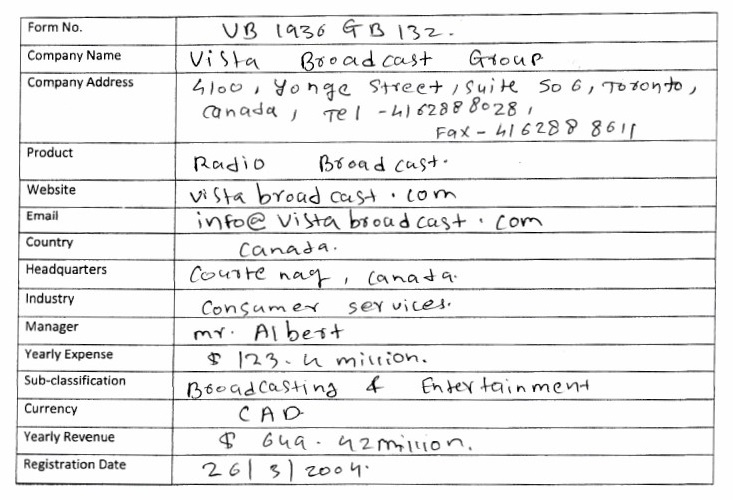 Form No. VB 1936 GB 132.
Company Name Vista Broadcast Group
Company Address 4100, Yonge Street, Suite 506, Toronto,
Canada, Tel - 4162888028,
Fax - 4162888611
Product Radio Broadcast.
Website vistabroadcast.com
Email info@vistabroadcast.com
Country Canada.
Headquarters Courtenay, Canada.
Industry Consumer services.
Manager mr. Albert
Yearly Expense $ 123.4 million.
Sub-classification Broadcasting & Entertainment
Currency CAD
Yearly Revenue $ 649.42 million.
Registration Date 26/3/2004.